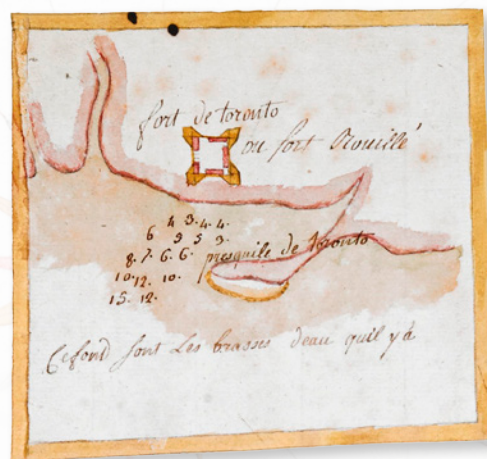 fort de toronto
ou fort Rouillé
4 3. 4. 4.
6 3 5 3.
8. 7. 6. 6.
presquile de toronto
10. 12. 10.
15. 12.
Ce fond sont Les brasses deau quil y á